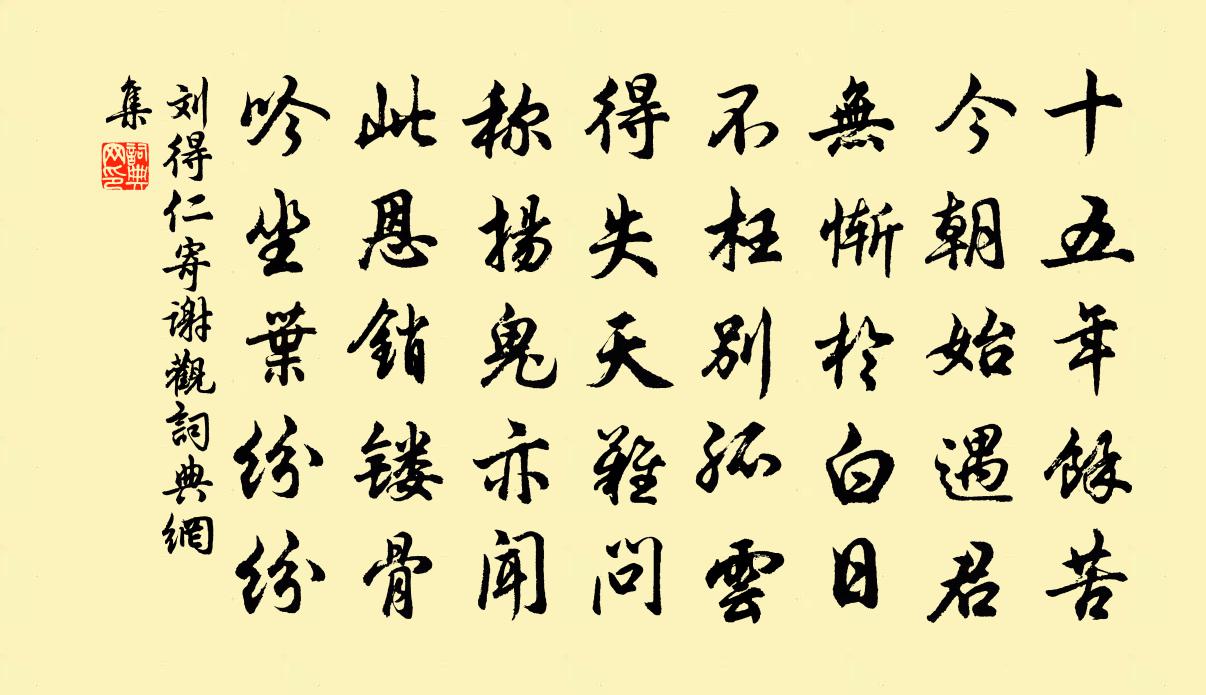 十五年餘苦
今朝始遇君
無慚於白日
不枉別孤雲
得失天難問
称揚鬼亦聞
此恩銷镂骨
吟坐葉紛紛
刘得仁寄谢觀詞典網
集
詞典网印